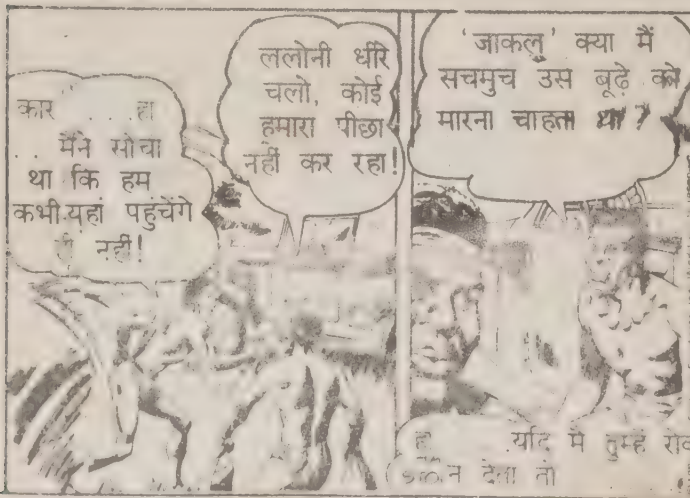 कार ... हा
... मैंने सोचा
था कि हम
कभी यहां पहुंचेंगे
ही नहीं!
ललोनी धीरे
चलो, कोई
हमारा पीछा
नहीं कर रहा!
'जाकलु' क्या मैं
सचमुच उस बूढ़े को
मारना चाहता था?
हा यदि मै तुम्हे
न देता तो